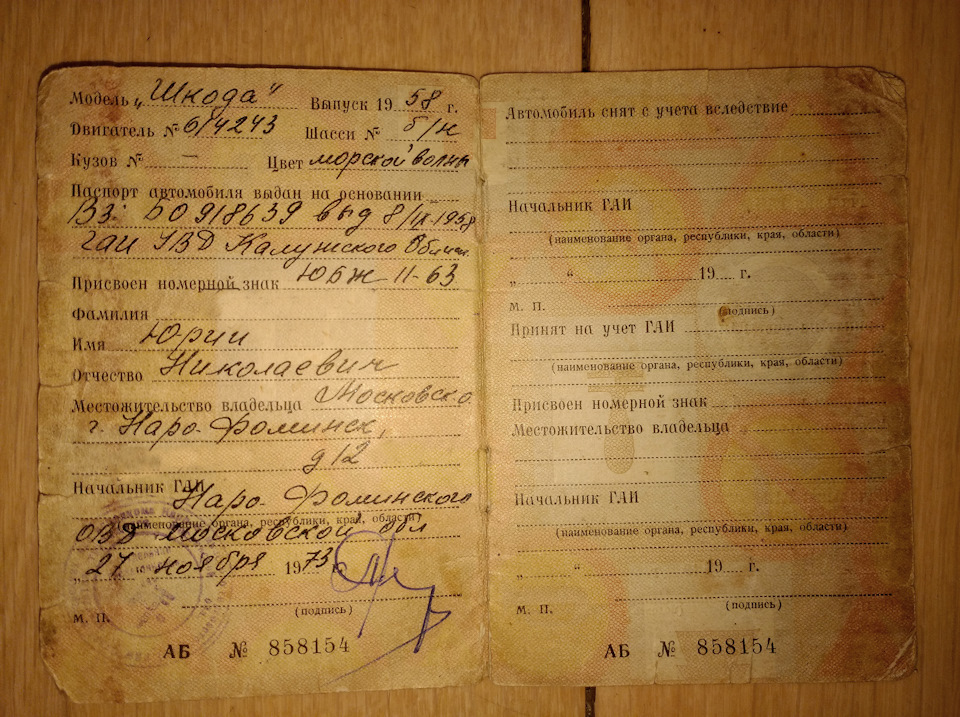 Модель „Шкода" Выпуск 1958 г.
Двигатель № 6/4243 Шасси № б/н
Кузов № — Цвет морской волны
Паспорт автомобиля выдан на основании
ВЗ: БО 918639 выд 8/IX-1958
ГАИ УВД Калужского Област.
Присвоен номерной знак ЮБЖ 11-63
Фамилия
Имя Юрий
Отчество Николаевич
Местожительство владельца Московск. о.
г. Наро-Фоминск,
д 12
Начальник ГАИ Наро-Фоминского
(наименование органа, республики, края, области)
ОВД Московской обл
„27 ноября 1973 г.
М. П. (подпись)
АБ № 858154
Автомобиль снят с учета вследствие
Начальник ГАИ
(наименование органа, республики, края, области)
„ “ 19 г.
М. П. (подпись)
Принят на учет ГАИ
(наименование органа, республики, края, области)
Присвоен номерной знак
Местожительство владельца
Начальник ГАИ
(наименование органа, республики, края, области)
„ “ 19 г.
М. П. (подпись)
АБ № 858154